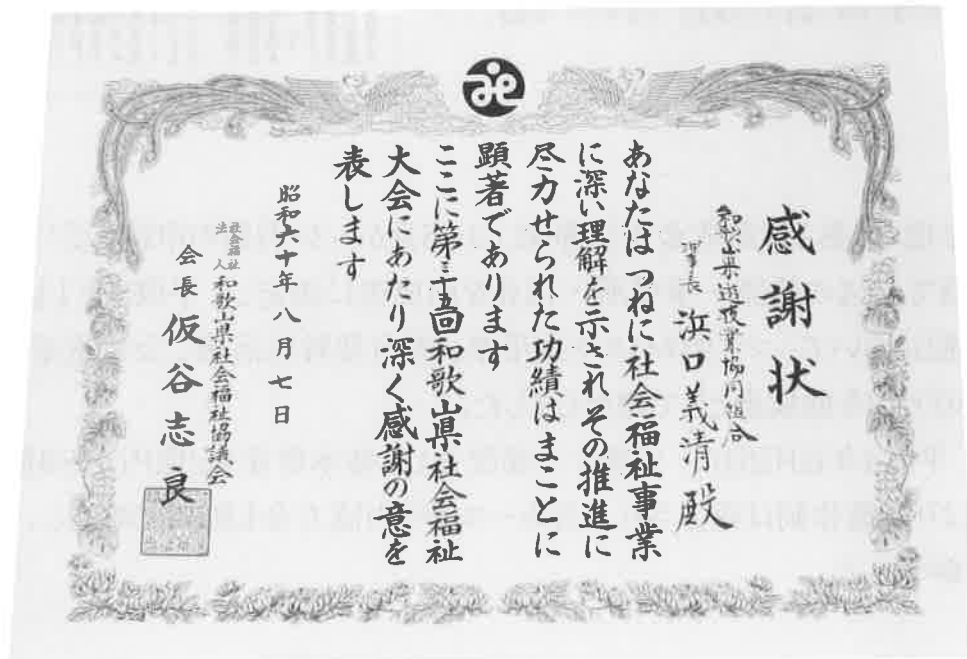 感謝状
和歌山県遊技業協同組合
理事長 浜口義清殿
あなたは つねに 社会福祉事業
に深い理解を示されその推進に
尽力せられた功績はまことに
顕著であります
ここに第三十五回和歌山県社会福祉
大会にあたり深く感謝の意を
表します
昭和六十年八月七日
社会福祉法人 和歌山県社会福祉協議会
会長 仮谷志良